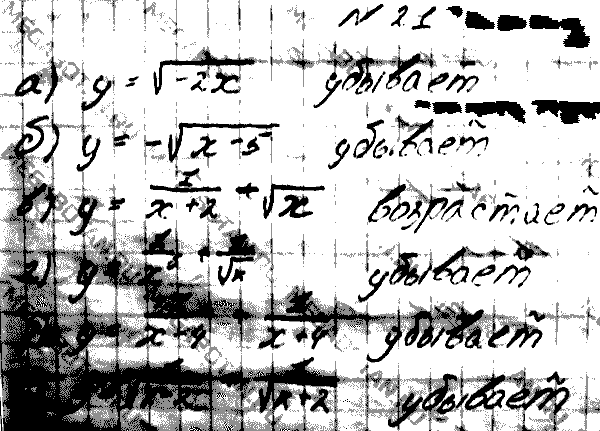 N 21
а) y = √-2x убывает
б) y = -√x-5 убывает
в) y = 1/x+2 + √x возрастает
г) y = 1/x + 1/√x убывает
y = x-4 + 1/x+4 убывает
1/√x+2 убывает